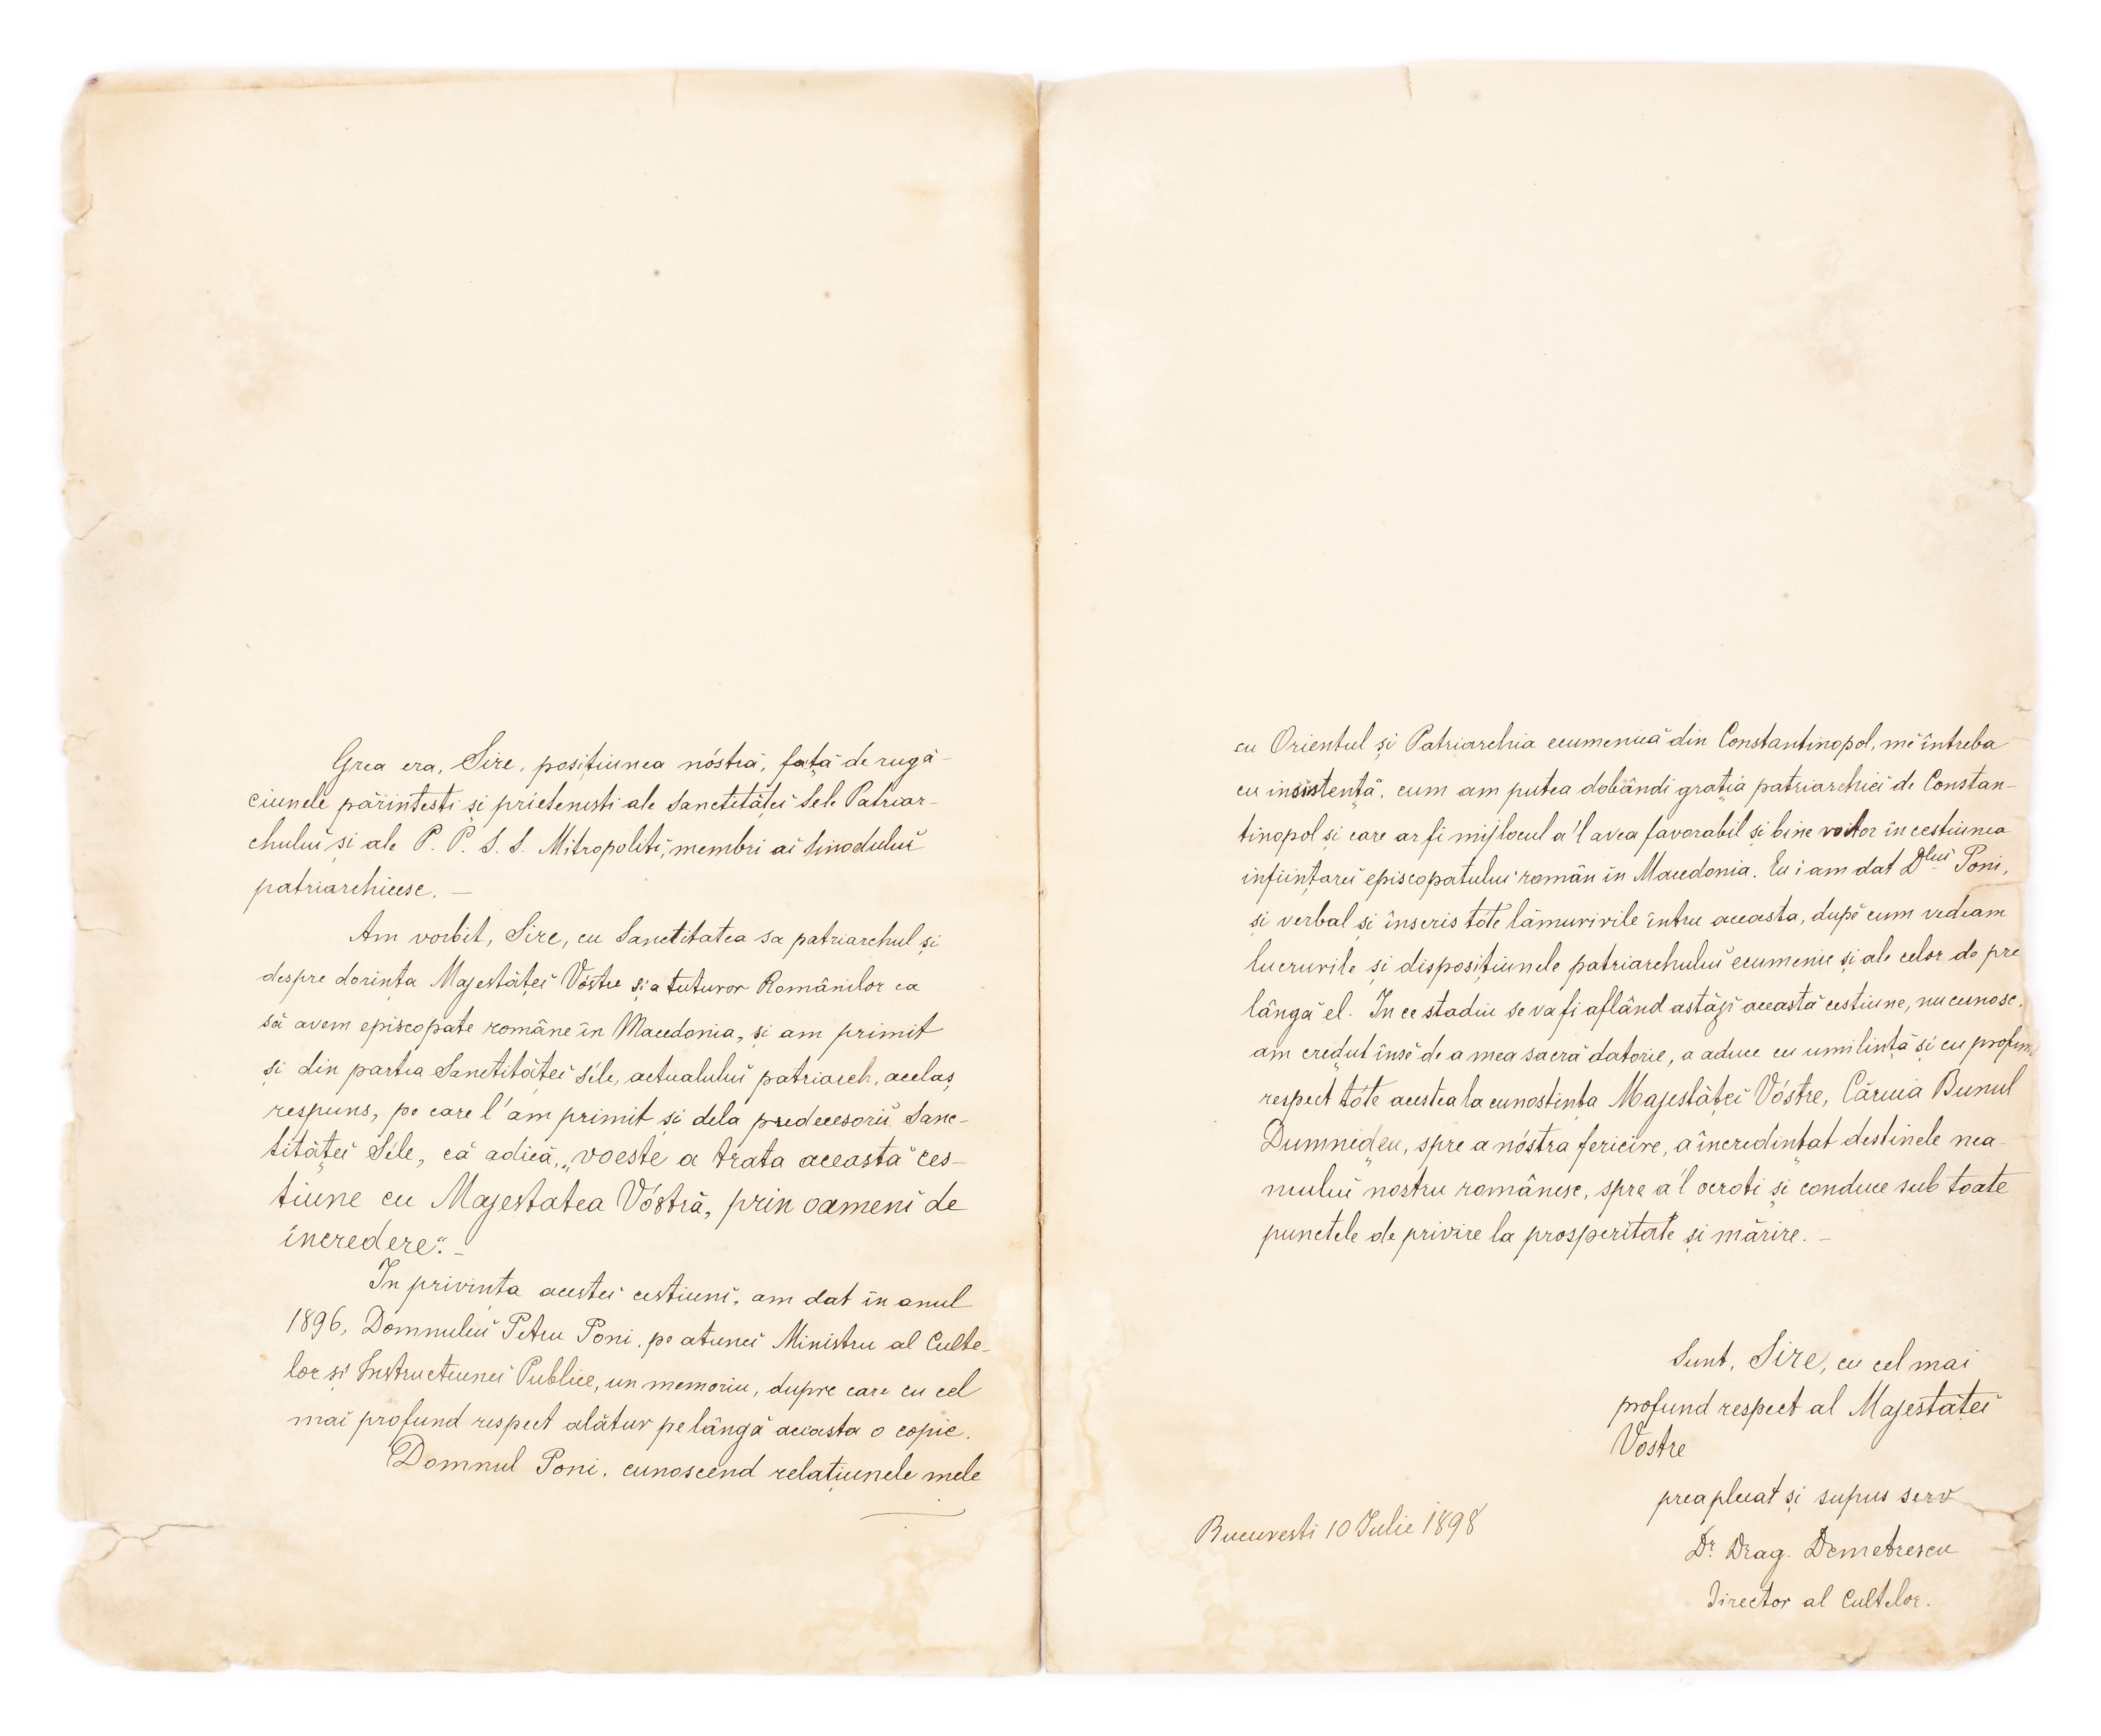 Grea era, Sire, posițiunea nóstră, față de rugă-
ciunele părintești și prietenești ale Sanctităței Sele Patriar-
chuluĭ și ale P. P. S. S. Mitropoliți, membri ai Sinoduluĭ
patriarchicesc. —
Am vorbit, Sire, cu Sanctitatea sa patriarchul și
despre dorința Majestăței Vóstre și a tuturor Românilor ca
să avem episcopate române în Macedonia, și am primit
și din partea Sanctităței Séle, actualuluĭ patriarch, acelaș
respuns, pe care l'am primit și dela predecesoriĭ Sanc-
tităței Séle, că adică, „voește a trata această ces-
tiune cu Majestatea Vóstră, prin oameni de
încredere“. —
In privința acestei cestiuni, am dat în anul
1896, Domnuluĭ Petru Poni, pe atunci Ministru al Culte-
lor și Instrucțiunei Publice, un memoriu, dupre care cu cel
mai profund respect alătur pe lângă aceasta o copie.
Domnul Poni, cunoscend relațiunele mele
cu Orientul și Patriarchia ecumenică din Constantinopol, mĕ întreba
cu insistență, cum am putea dobândi grația patriarchiei de Constan-
tinopol și care ar fi mijlocul a'l avea favorabil și bine voitor în cestiunea
înființărei episcopatuluĭ român în Macedonia. Eu i am dat Dlui Poni,
și verbal și înscris tóte lămuririle întru aceasta, dupĕ cum vedeam
lucrurile și disposițiunele patriarchuluĭ ecumenic și ale celor de pre
lângă el. In ce stadiu se va fi aflând astăḑi această cestiune, nu cunosc,
am creḑut însĕ de a mea sacră datorie, a aduce cu umilință și cu profund
respect tóte acestea la cunostința Majestăței Vóstre, Căruia Bunul
Dumneḑeu, spre a nóstra fericire, a încredințat destinele nea-
muluĭ nostru românesc, spre a'l ocroti și conduce sub toate
punctele de privire la prosperitate și mărire. —
Sunt, Sire, cu cel mai
profund respect al Majestăței
Vostre
prea plecat și supus serv
Dr. Drag. Demetrescu
Director al Cultelor.
Bucuresti 10 Iulie 1898